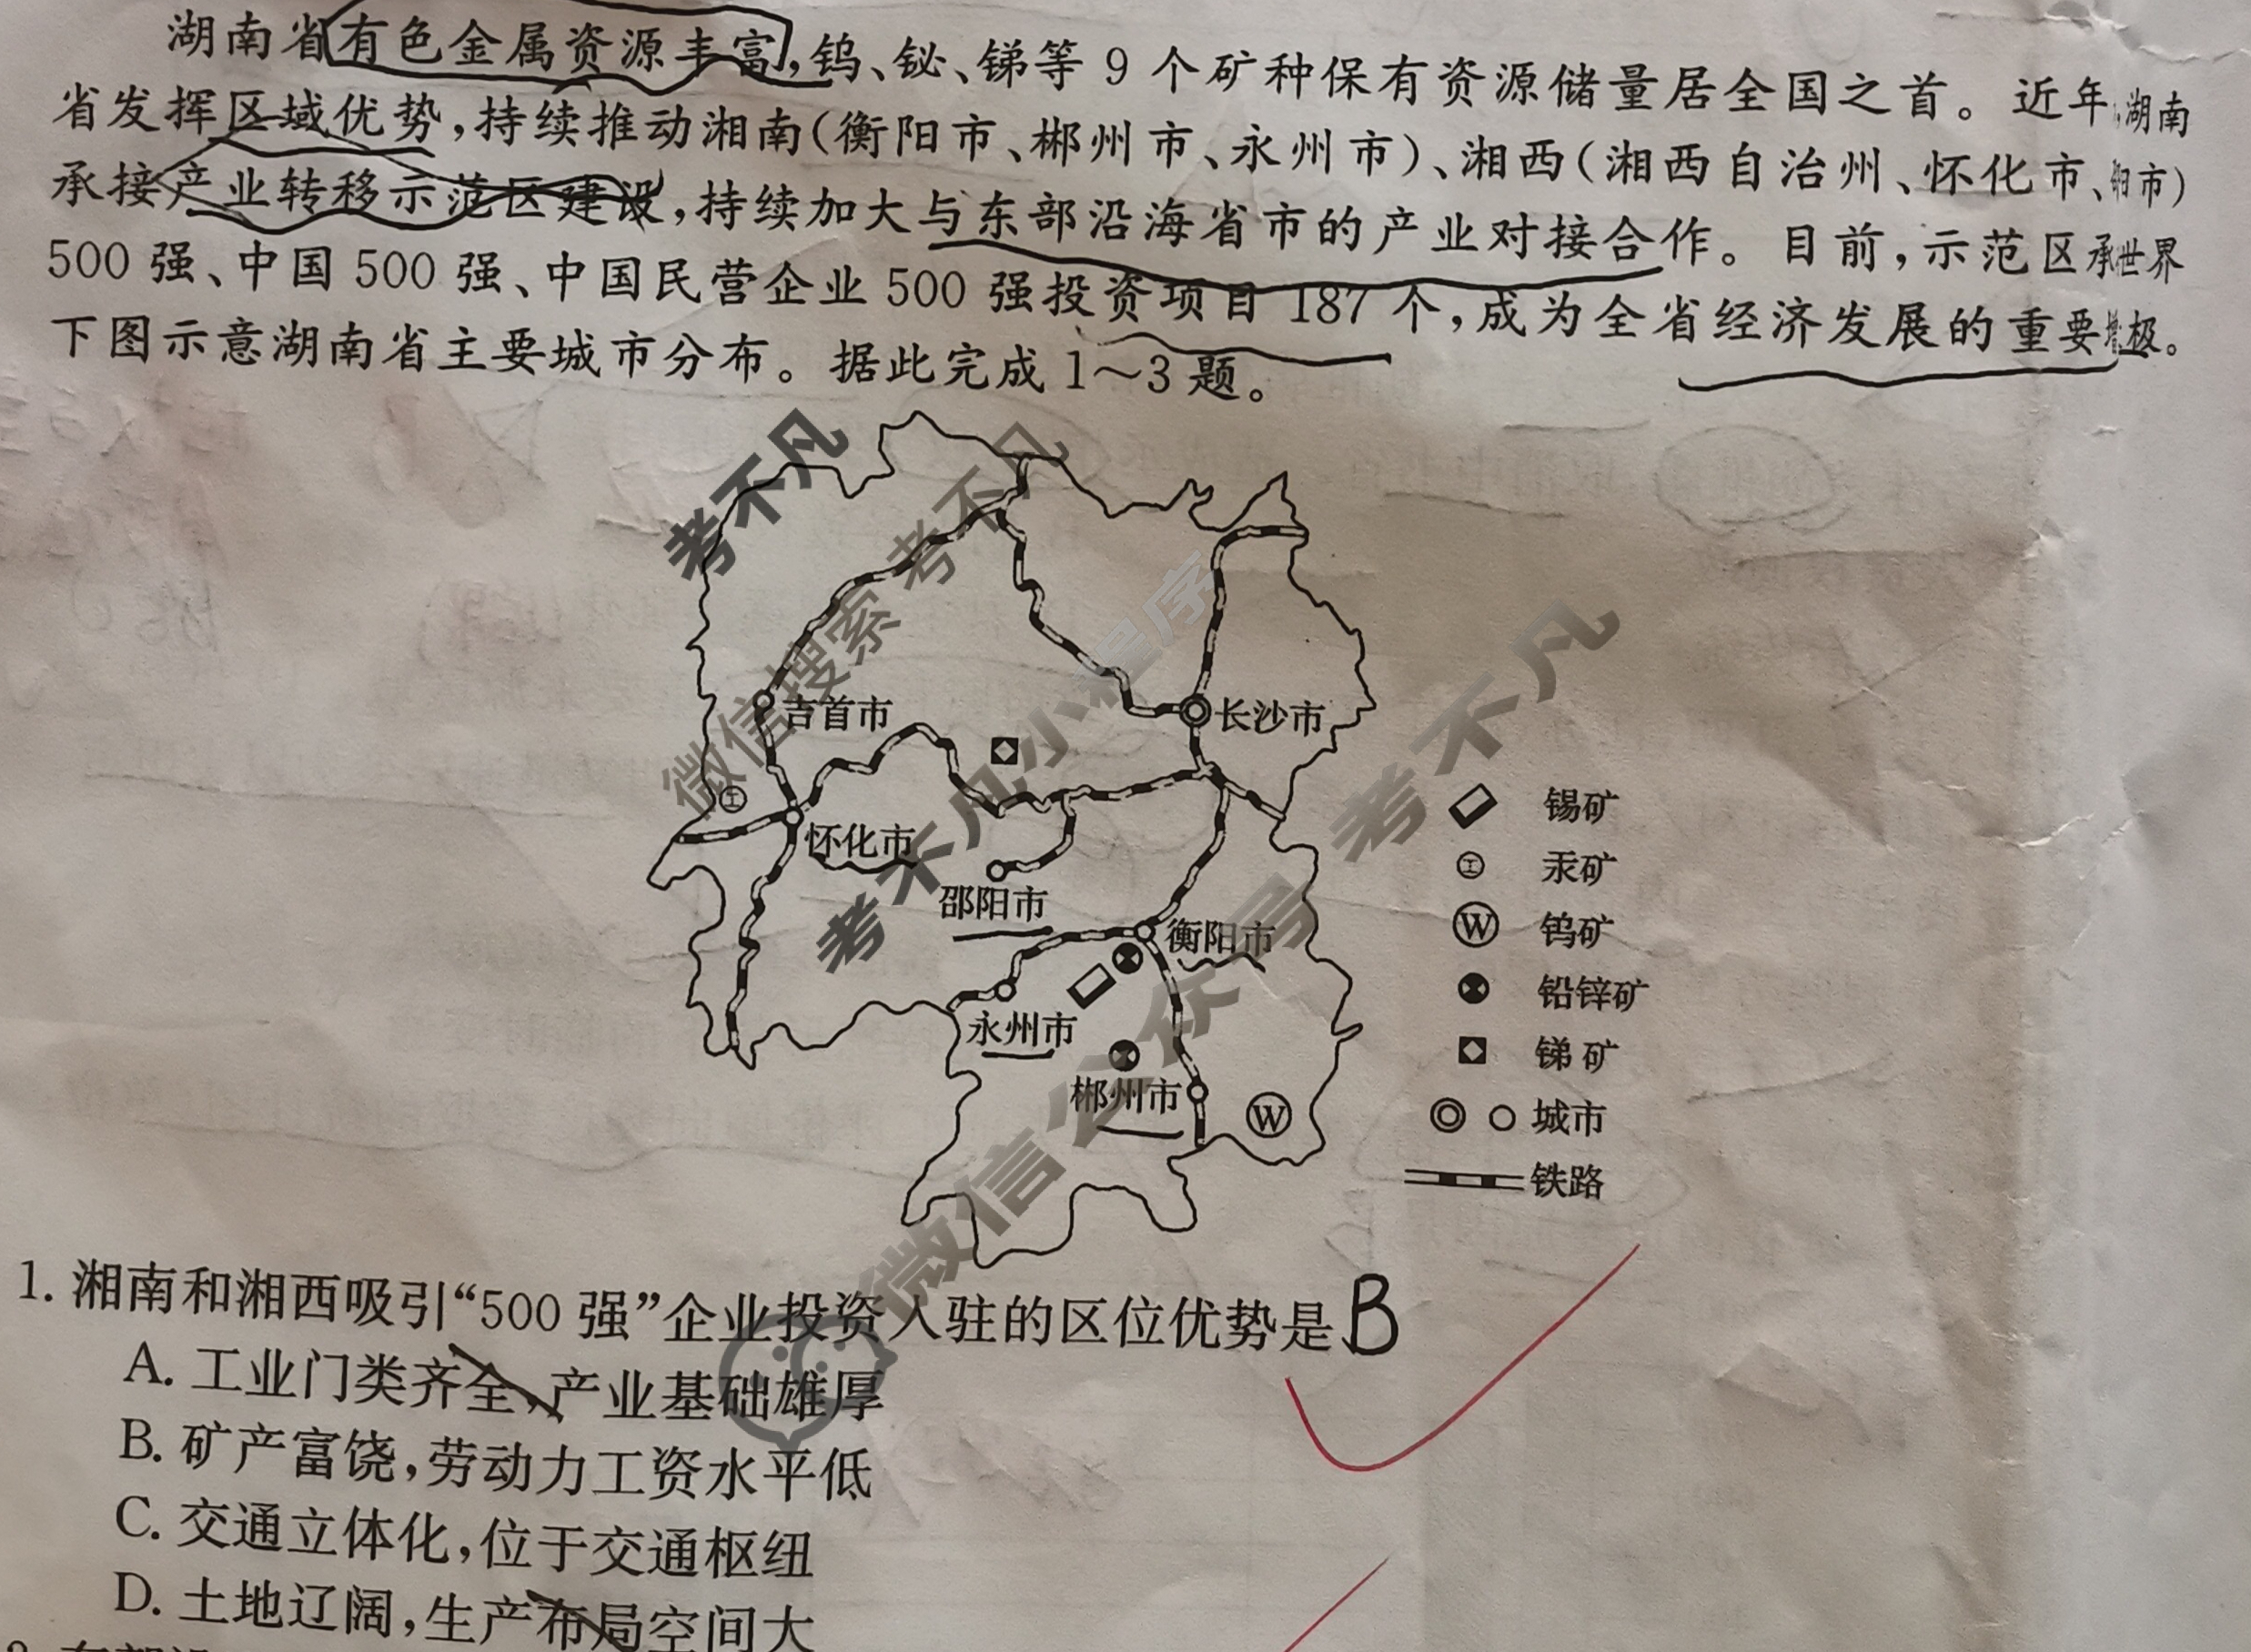 湖南省有色金属资源丰富,钨、铋、锑等 9 个矿种保有资源储量居全国之首。近年,湖南
省发挥区域优势,持续推动湘南(衡阳市、郴州市、永州市)、湘西(湘西自治州、怀化市、阳市)
承接产业转移示范区建设,持续加大与东部沿海省市的产业对接合作。目前,示范区承世界
500 强、中国 500 强、中国民营企业 500 强投资项目 187 个,成为全省经济发展的重要增极。
下图示意湖南省主要城市分布。据此完成 1～3 题。
吉首市
长沙市
怀化市
邵阳市
衡阳市
永州市
郴州市
W
锡矿
工 汞矿
W 钨矿
铅锌矿
锑矿
城市
铁路
考不凡
微信搜索 考不凡
考不凡小程序
考不凡
微信公众号
1. 湘南和湘西吸引“500 强”企业投资入驻的区位优势是B
A. 工业门类齐全,产业基础雄厚
B. 矿产富饶,劳动力工资水平低
C. 交通立体化,位于交通枢纽
D. 土地辽阔,生产布局空间大